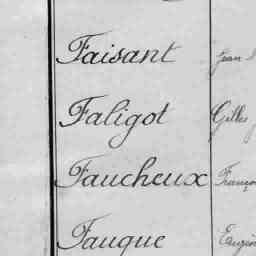 Faisant Jean
Faligot Gilles
Faucheux Franço
Fauque Eugèn